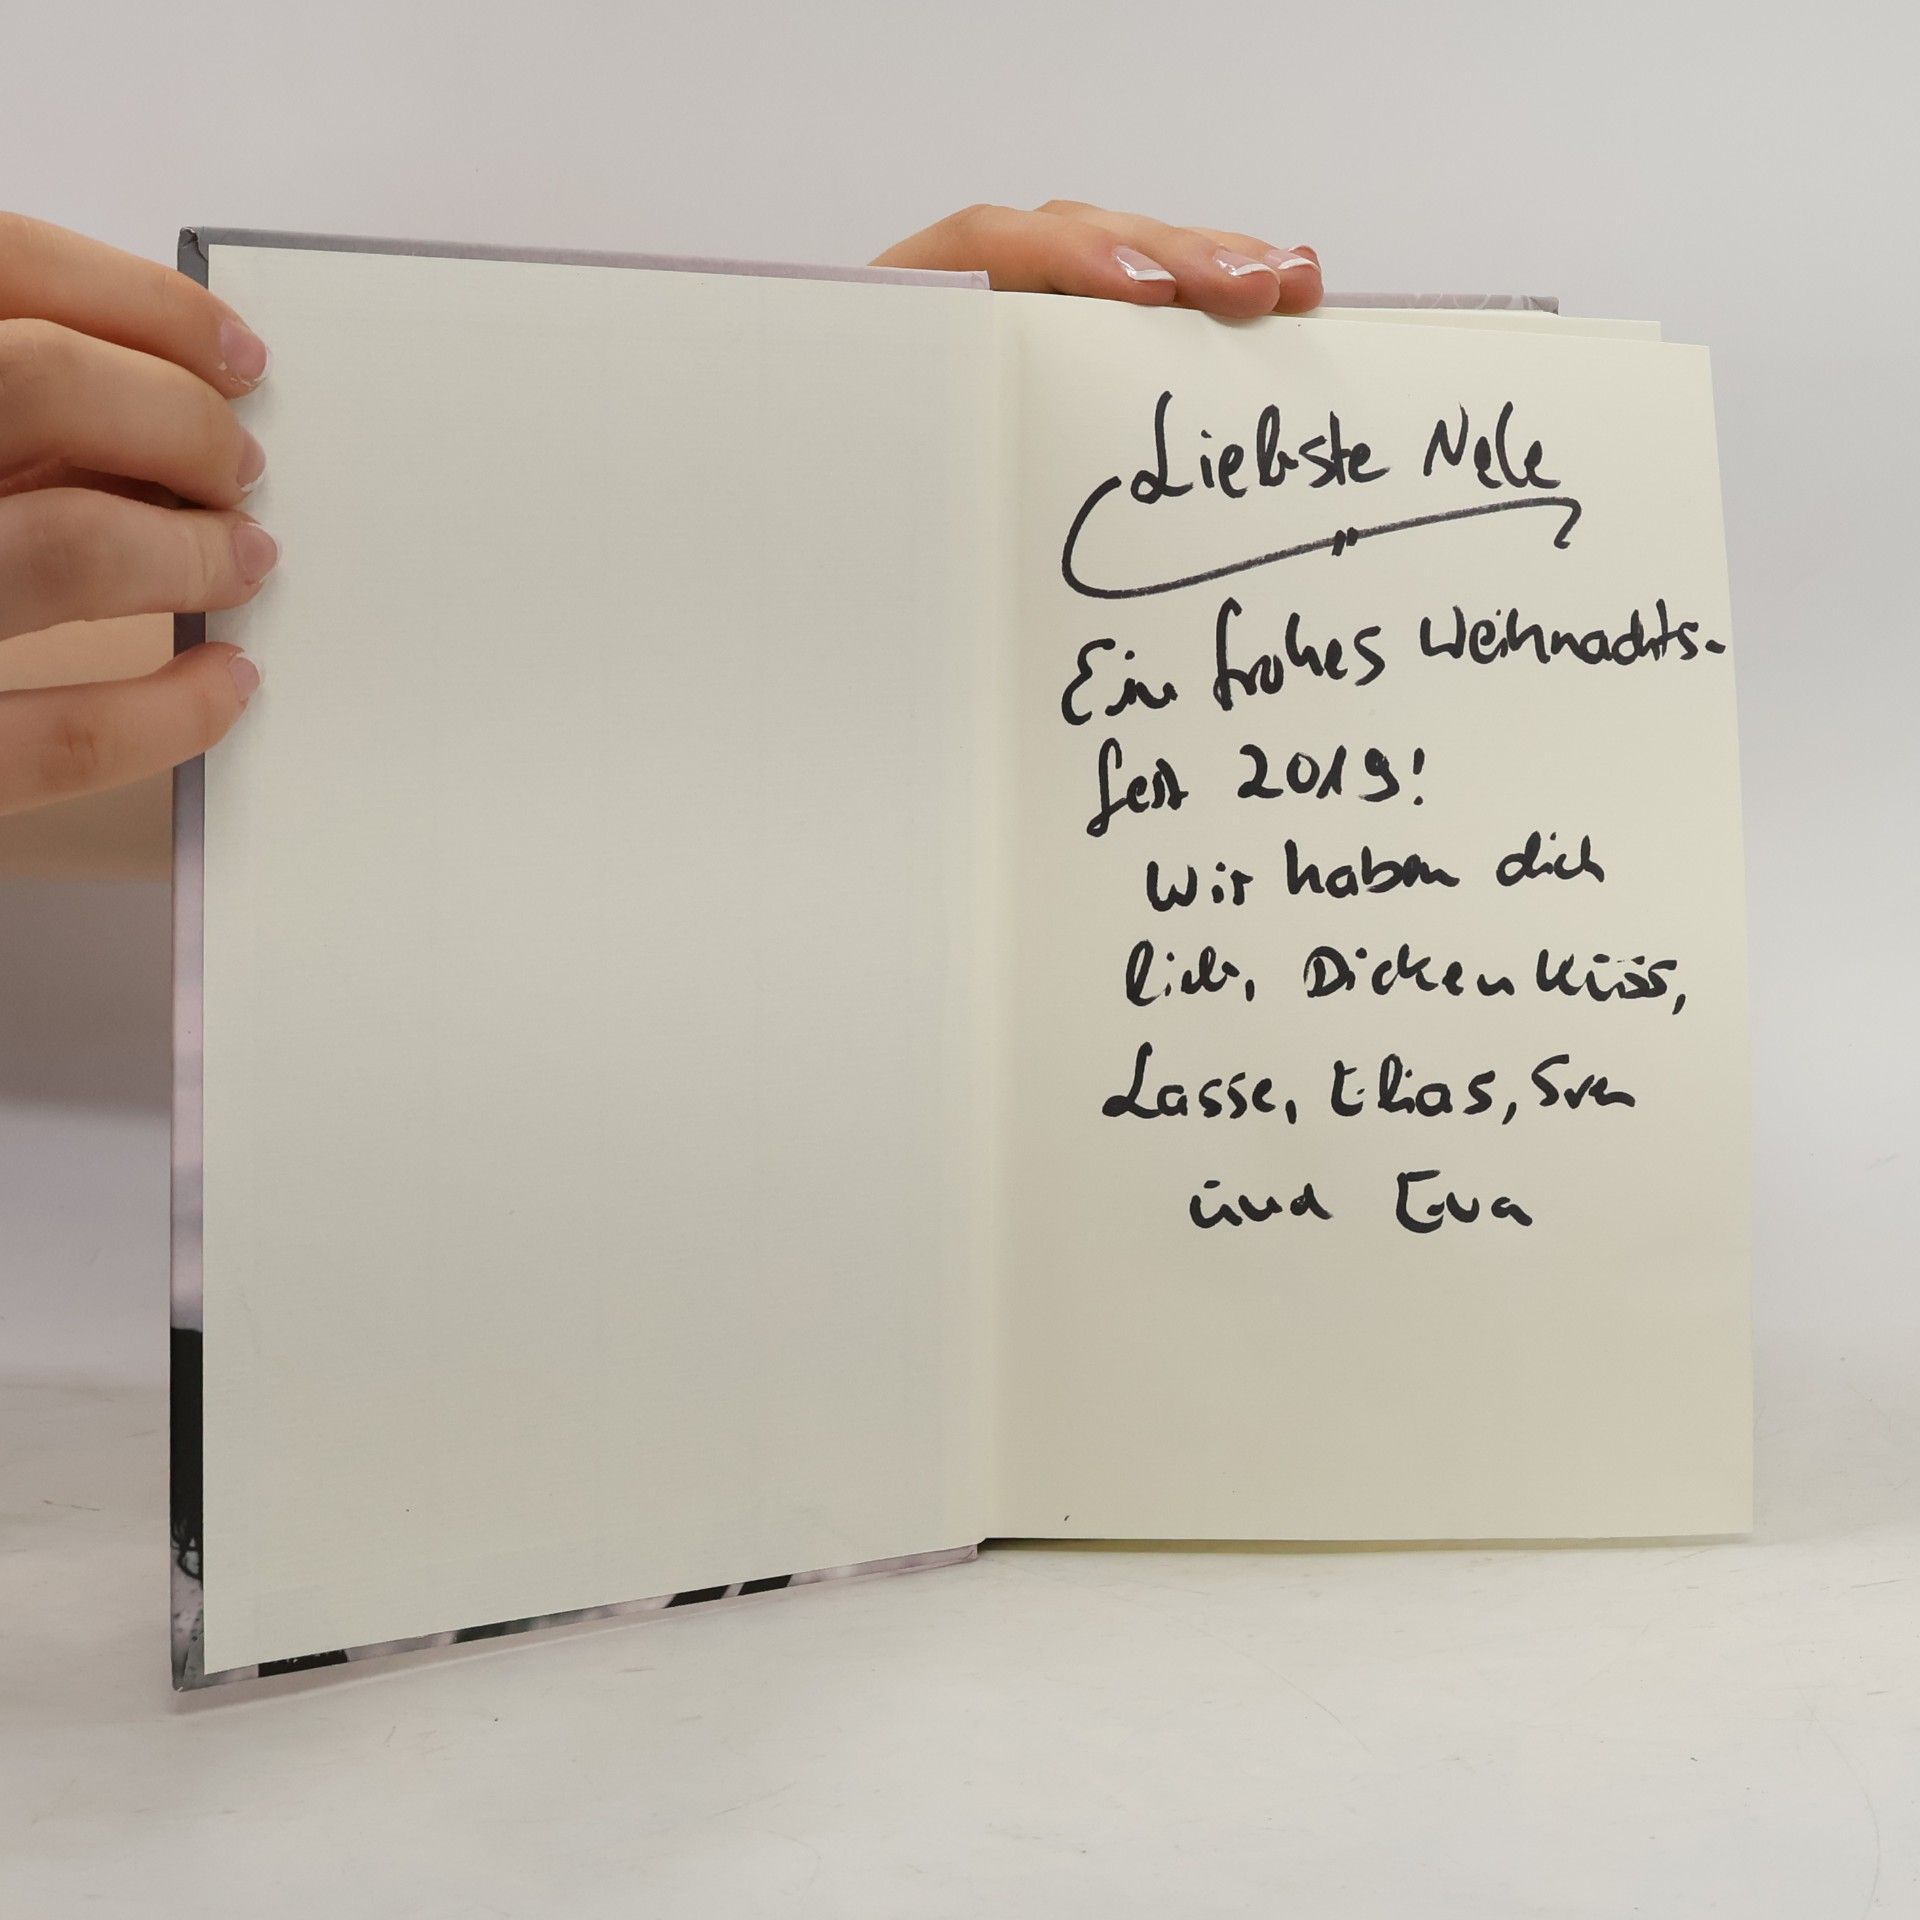 Liebste Nele
Ein frohes Weihnachts-
fest 2019!
Wir haben dich
lieb, Dicken Küss,
Lasse, Elias, Sven
und Eva